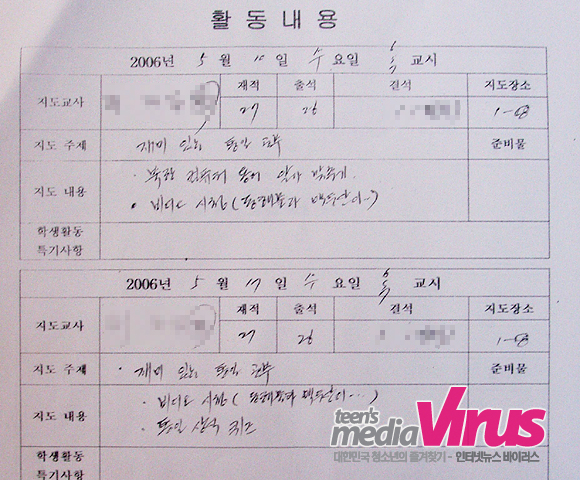 활 동 내 용
2006년 5 월 10 일 수 요일 6 교시
지도교사 재적 출석 결석 지도장소
27 26 1-8
지도 주제 재미 있는 통일 교육 준비물
지도 내용 · 북한 컴퓨터 용어 알아 맞추기
· 비디오 시청 (동해물과 백두산이~)
학생활동
특기사항
2006년 5 월 17 일 수 요일 6 교시
지도교사 재적 출석 결석 지도장소
27 26 1-8
지도 주제 · 재미 있는 통일 교육 준비물
지도 내용 · 비디오 시청 (동해물과 백두산이...)
· 통일 상식 퀴즈
학생활동
특기사항
teen's
media Virus
대한민국 청소년의 즐겨찾기 - 인터넷뉴스 바이러스